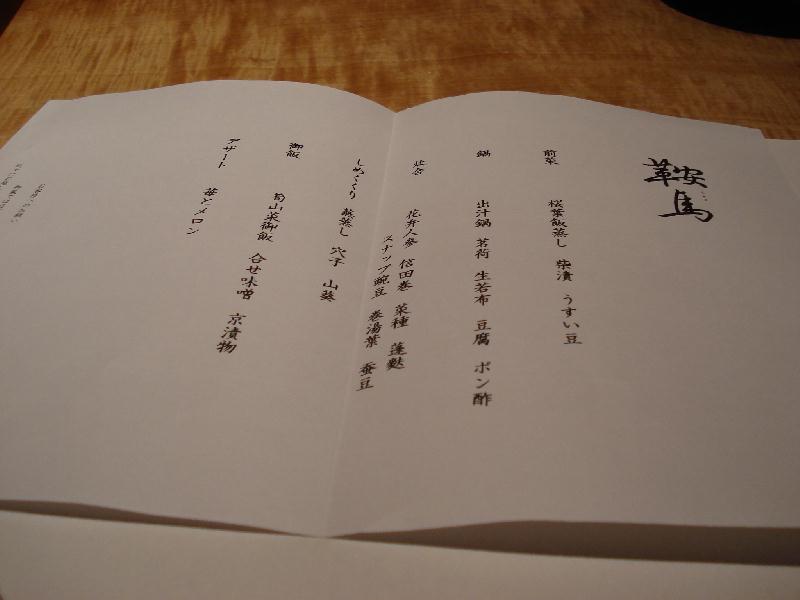 鞍馬
前菜　桜葉飯蒸し　柴漬　うすい豆
鍋　出汁鍋　茗荷　生若布　豆腐　ポン酢
炊合　花弁人参　信田巻　菜種　蓬麩
スナップ豌豆　巻湯葉　蚕豆
しめくくり　蕪蒸し　穴子　山葵
御飯　筍山菜御飯　合せ味噌　京漬物
デザート　苺とメロン